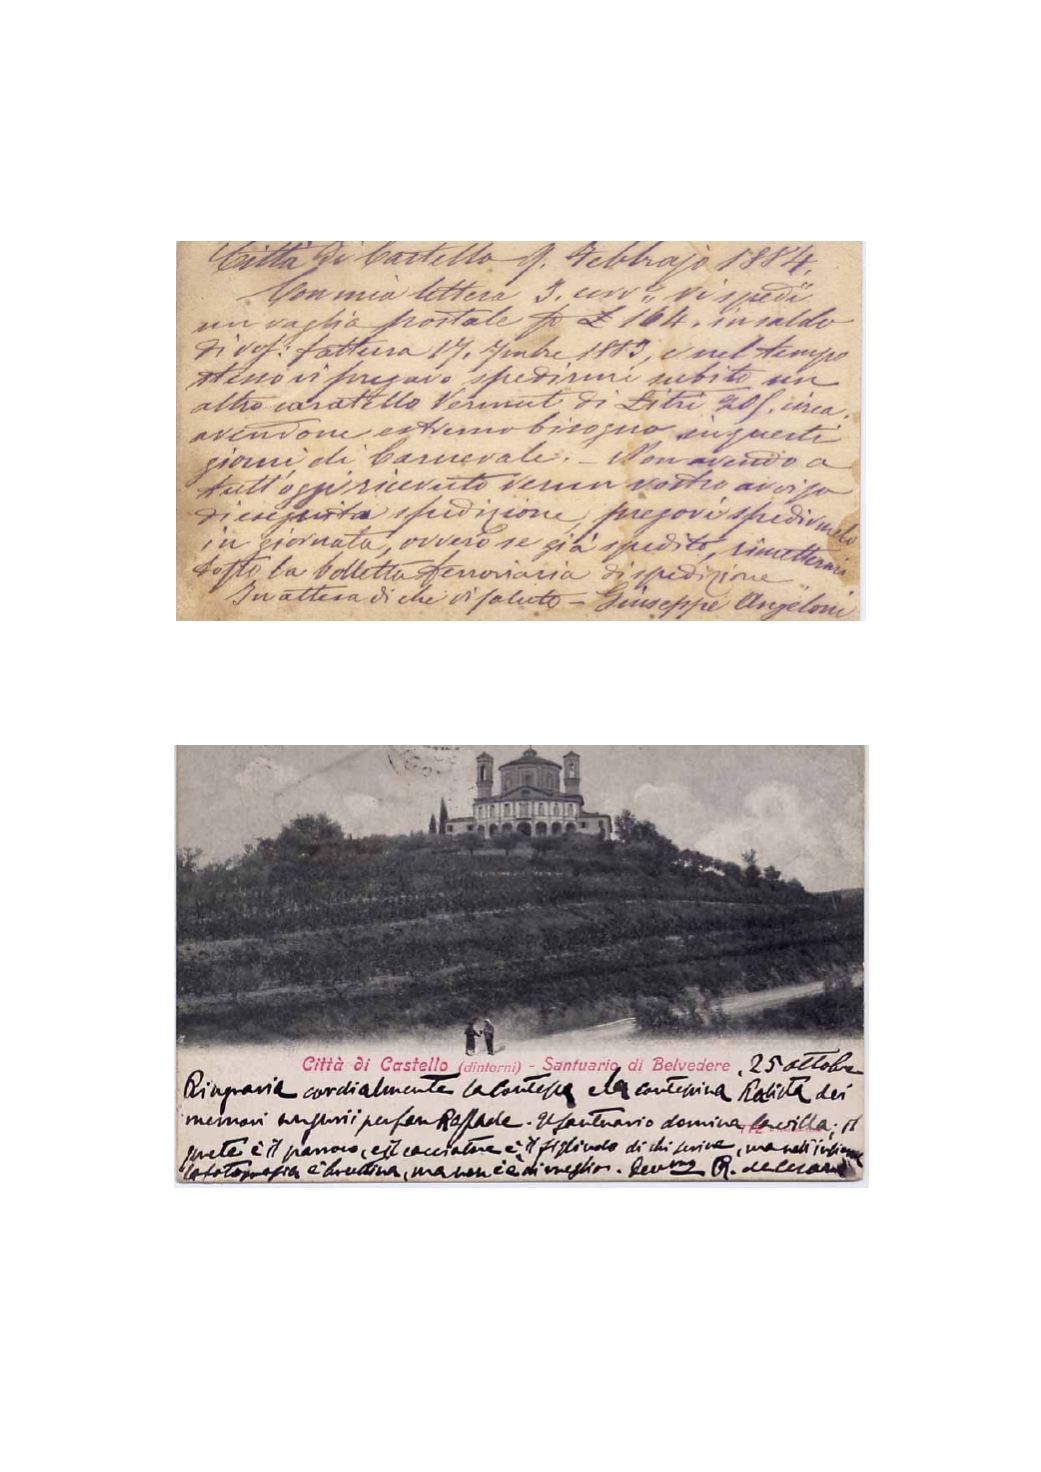 Città di Castello 9. Febbrajo 1884.
Con mia lettera 3. corr.e vi spedii
un vaglia postale p £ 164. in saldo
di vos: fattura 17. 7mbre 1883, e nel tempo
stesso vi pregavo spedirmi subito un
altro caratello Vermut di Litri 205. circa.
avendone estremo bisogno in questi
giorni di Carnevale. - Non avendo a
tutt'oggi ricevuto verun vostro avviso
di eseguita spedizione, pregovi spedirmelo
in giornata, ovvero se già spedito, rimettermi
tosto la bolletta ferroviaria di spedizione
In attesa di che vi saluto - Giuseppe Angeloni
Città di Castello (dintorni) - Santuario di Belvedere, 25 ottobre
Ringrazia cordialmente la Contessa e la contessina dei
memori augurii per San Raffaele. Il santuario domina la villa; il
prete è il parroco, e il cacciatore è il figliuolo di chi scrive, ma nell'insieme
la fotografia è bruttina, ma non c'è di meglio. R. de Cesare